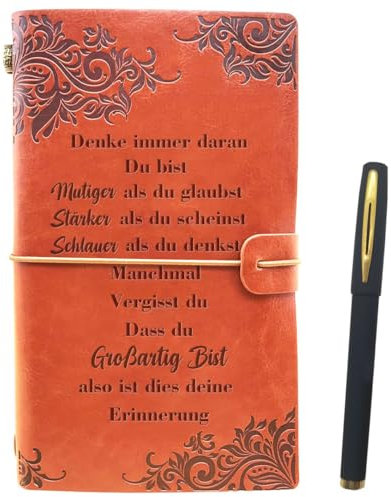 Denke immer daran
Du bist
Mutiger als du glaubst
Stärker als du scheinst
Schlauer als du denkst
Manchmal
Vergisst du
Dass du
Großartig Bist
also ist dies deine
Erinnerung